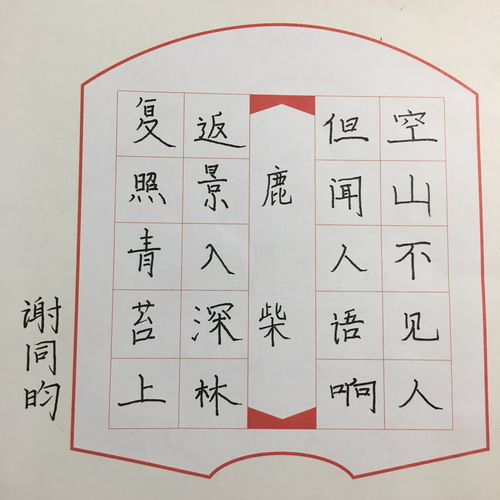 空山不见人
但闻人语响
鹿柴
返景入深林
复照青苔上
谢同昀